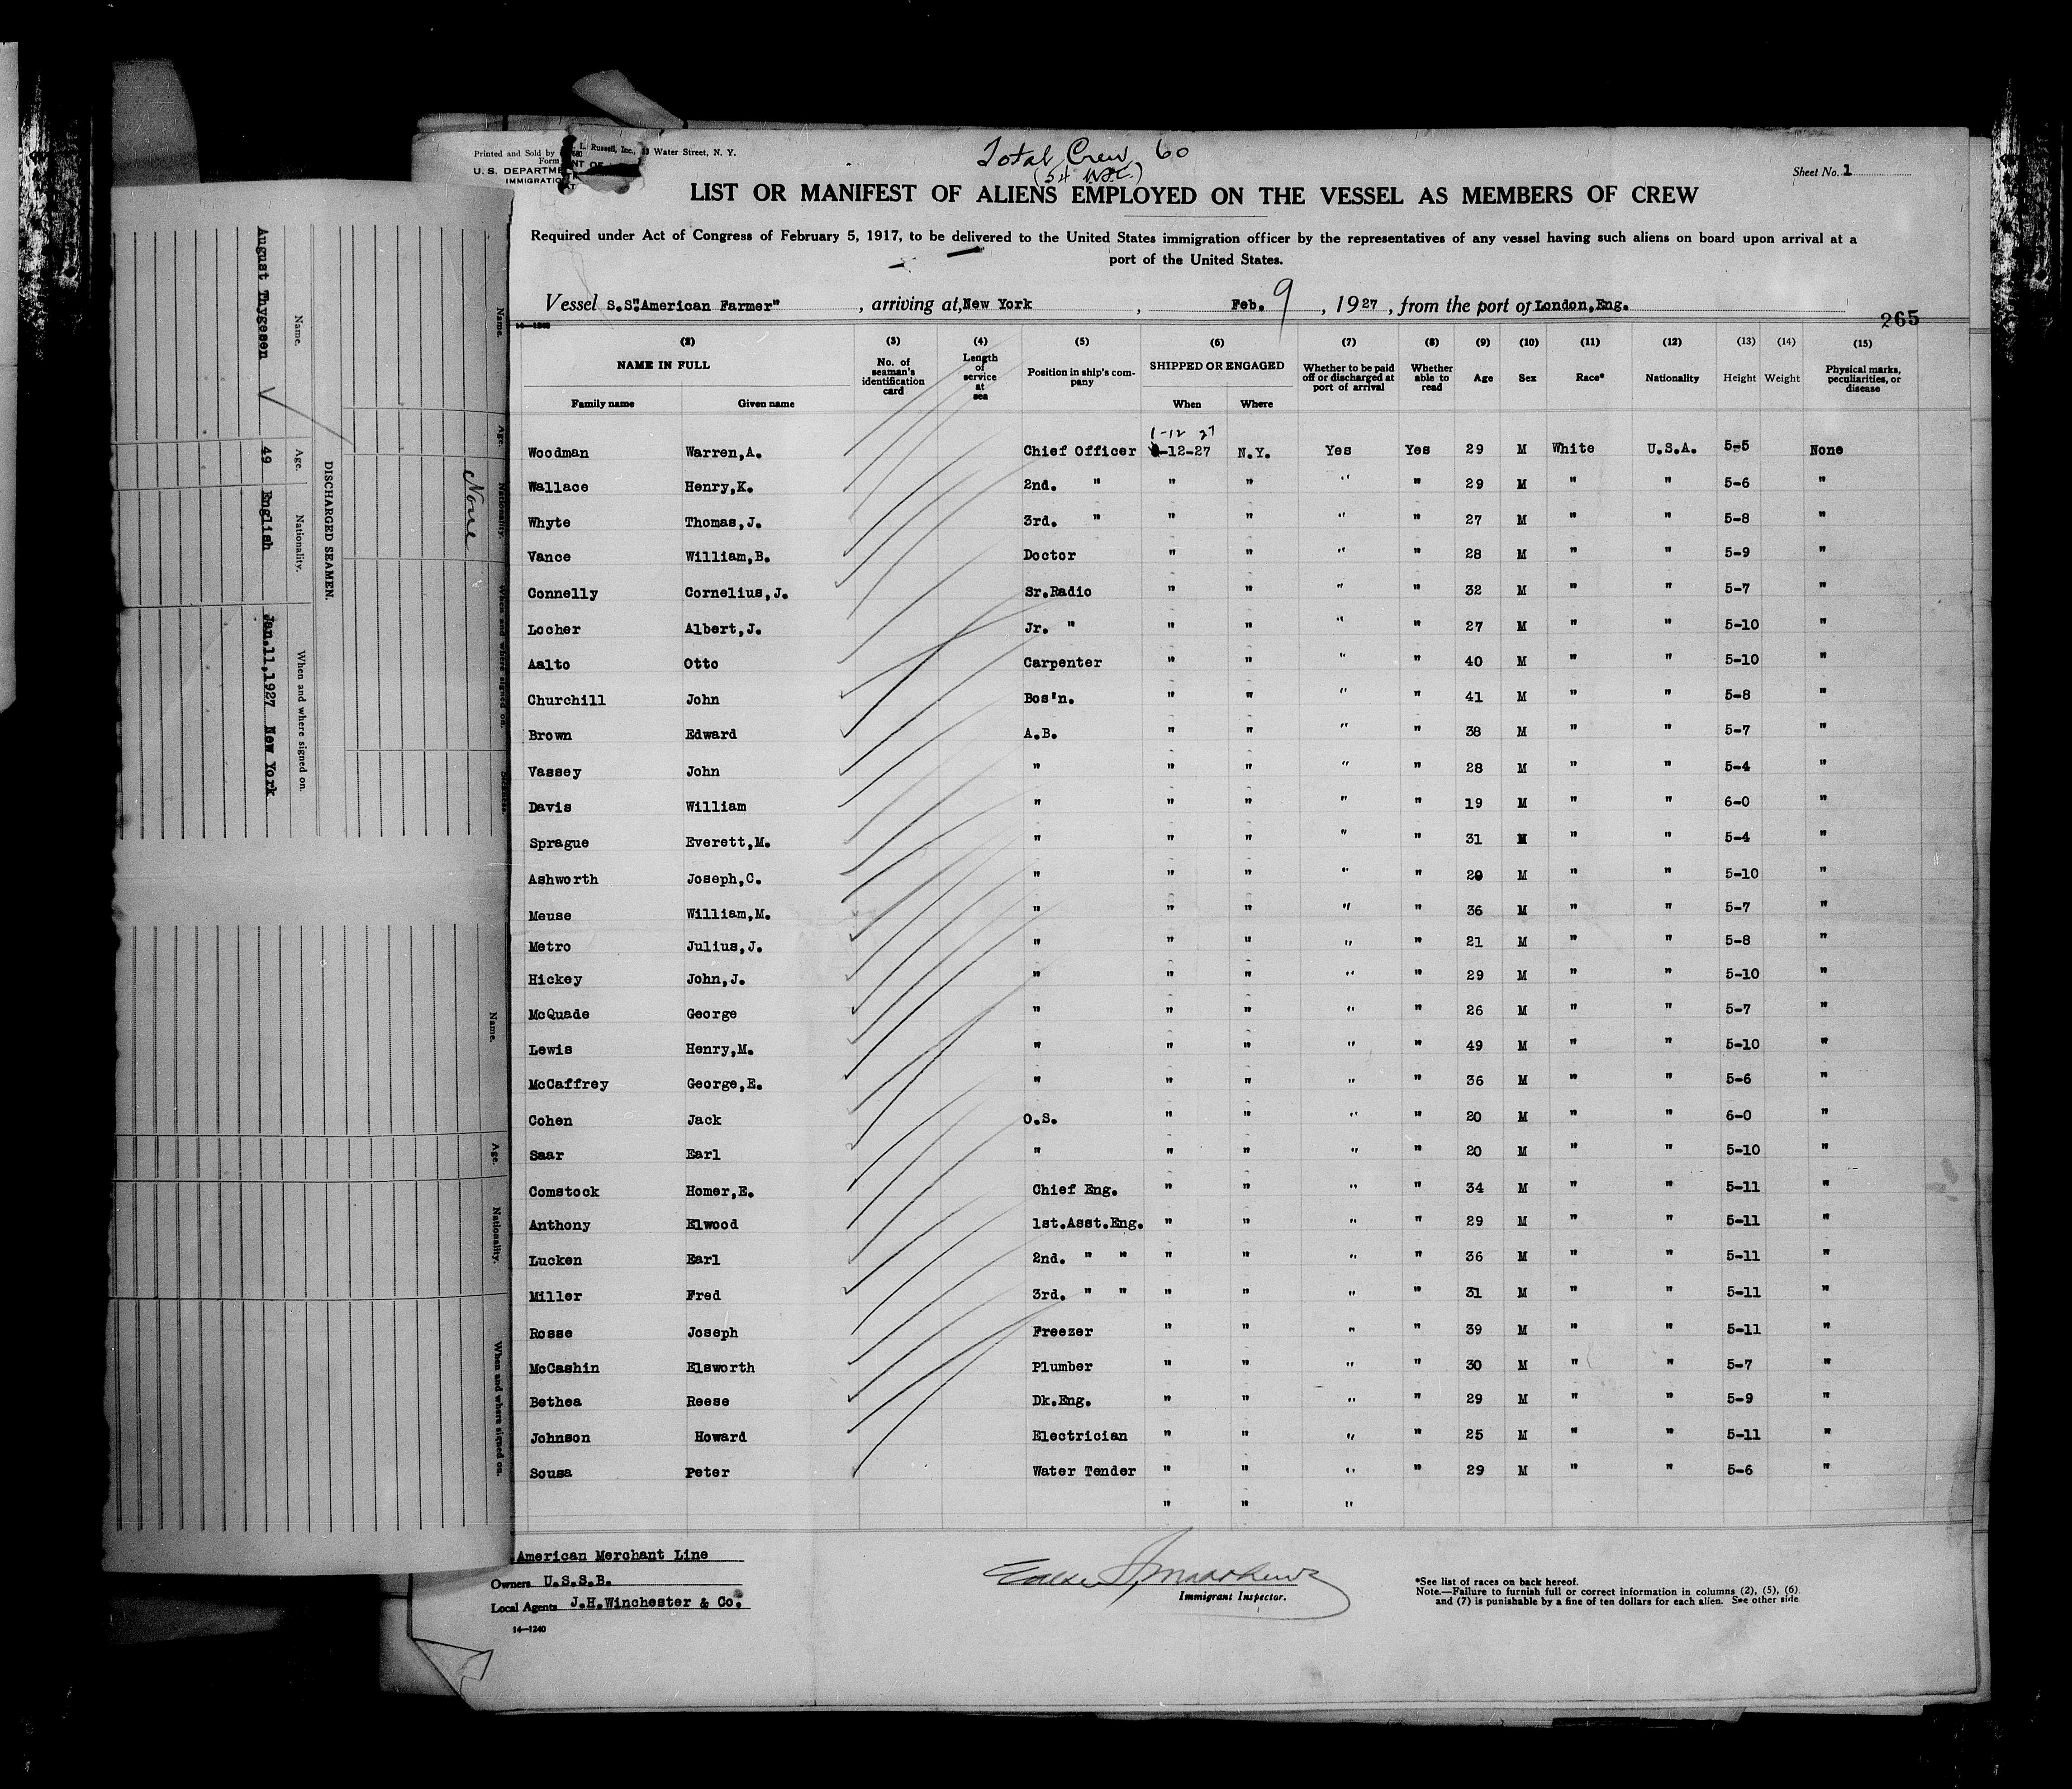 Total Crew 60
Printed and Sold by L. Russell, Inc., Water Street, N. Y.
Form
U. S. DEPARTMENT OF
IMMIGRATION
Sheet No. 1
LIST OR MANIFEST OF ALIENS EMPLOYED ON THE VESSEL AS MEMBERS OF CREW
Required under Act of Congress of February 5, 1917, to be delivered to the United States immigration officer by the representatives of any vessel having such aliens on board upon arrival at a
port of the United States.
Vessel S.S."American Farmer" , arriving at, New York , Feb. 9 , 1927 , from the port of London,Eng.
265
14—1240
(2) (3) (4) (5) (6) (7) (8) (9) (10) (11) (12) (13) (14) (15)
NAME IN FULL No. of seaman's identification card Length of service at sea Position in ship's company SHIPPED OR ENGAGED Whether to be paid off or discharged at port of arrival Whether able to read Age Sex Race* Nationality Height Weight Physical marks, peculiarities, or disease
Family name Given name When Where
1-12 27
Woodman Warren,A. Chief Officer -12-27 N.Y. Yes Yes 29 M White U.S.A. 5-5 None
Wallace Henry,K. 2nd. " " " " " 29 M " " 5-6 "
Whyte Thomas,J. 3rd. " " " " " 27 M " " 5-8 "
Vance William,B. Doctor " " " " 28 M " " 5-9 "
Connelly Cornelius,J. Sr.Radio " " " " 32 M " " 5-7 "
Locher Albert,J. Jr. " " " " " 27 M " " 5-10 "
Aalto Otto Carpenter " " " " 40 M " " 5-10 "
Churchill John Bos'n. " " " " 41 M " " 5-8 "
Brown Edward A.B. " " " " 38 M " " 5-7 "
Vassey John " " " " " 28 M " " 5-4 "
Davis William " " " " " 19 M " " 6-0 "
Sprague Everett,M. " " " " " 31 M " " 5-4 "
Ashworth Joseph,C. " " " " " 20 M " " 5-10 "
Meuse William,M. " " " " " 36 M " " 5-7 "
Metro Julius,J. " " " " " 21 M " " 5-8 "
Hickey John,J. " " " " " 29 M " " 5-10 "
McQuade George " " " " " 26 M " " 5-7 "
Lewis Henry,M. " " " " " 49 M " " 5-10 "
McCaffrey George,E. " " " " " 36 M " " 5-6 "
Cohen Jack O.S. " " " " 20 M " " 6-0 "
Saar Earl " " " " " 20 M " " 5-10 "
Comstock Homer,E. Chief Eng. " " " " 34 M " " 5-11 "
Anthony Elwood 1st.Asst.Eng. " " " " 29 M " " 5-11 "
Lucken Earl 2nd. " " " " " " 36 M " " 5-11 "
Miller Fred 3rd. " " " " " " 31 M " " 5-11 "
Rosse Joseph Freezer " " " " 39 M " " 5-11 "
McCashin Elsworth Plumber " " " " 30 M " " 5-7 "
Bethea Reese Dk.Eng. " " " " 29 M " " 5-9 "
Johnson Howard Electrician " " " " 25 M " " 5-11 "
Sousa Peter Water Tender " " " " 29 M " " 5-6 "
" " "
American Merchant Line
Owners U.S.S.B.
Local Agents J.H.Winchester & Co.
14—1240
Immigrant Inspector.
*See list of races on back hereof.
Note.—Failure to furnish full or correct information in columns (2), (5), (6)
and (7) is punishable by a fine of ten dollars for each alien. See other side.
Name. Age. Nationality. When and where signed on.
None
DISCHARGED SEAMEN.
Name. Age. Nationality. When and where signed on.
August Thygesen 49 English Jan.11,1927 New York
Name. Age. Nationality. When and where signed on.